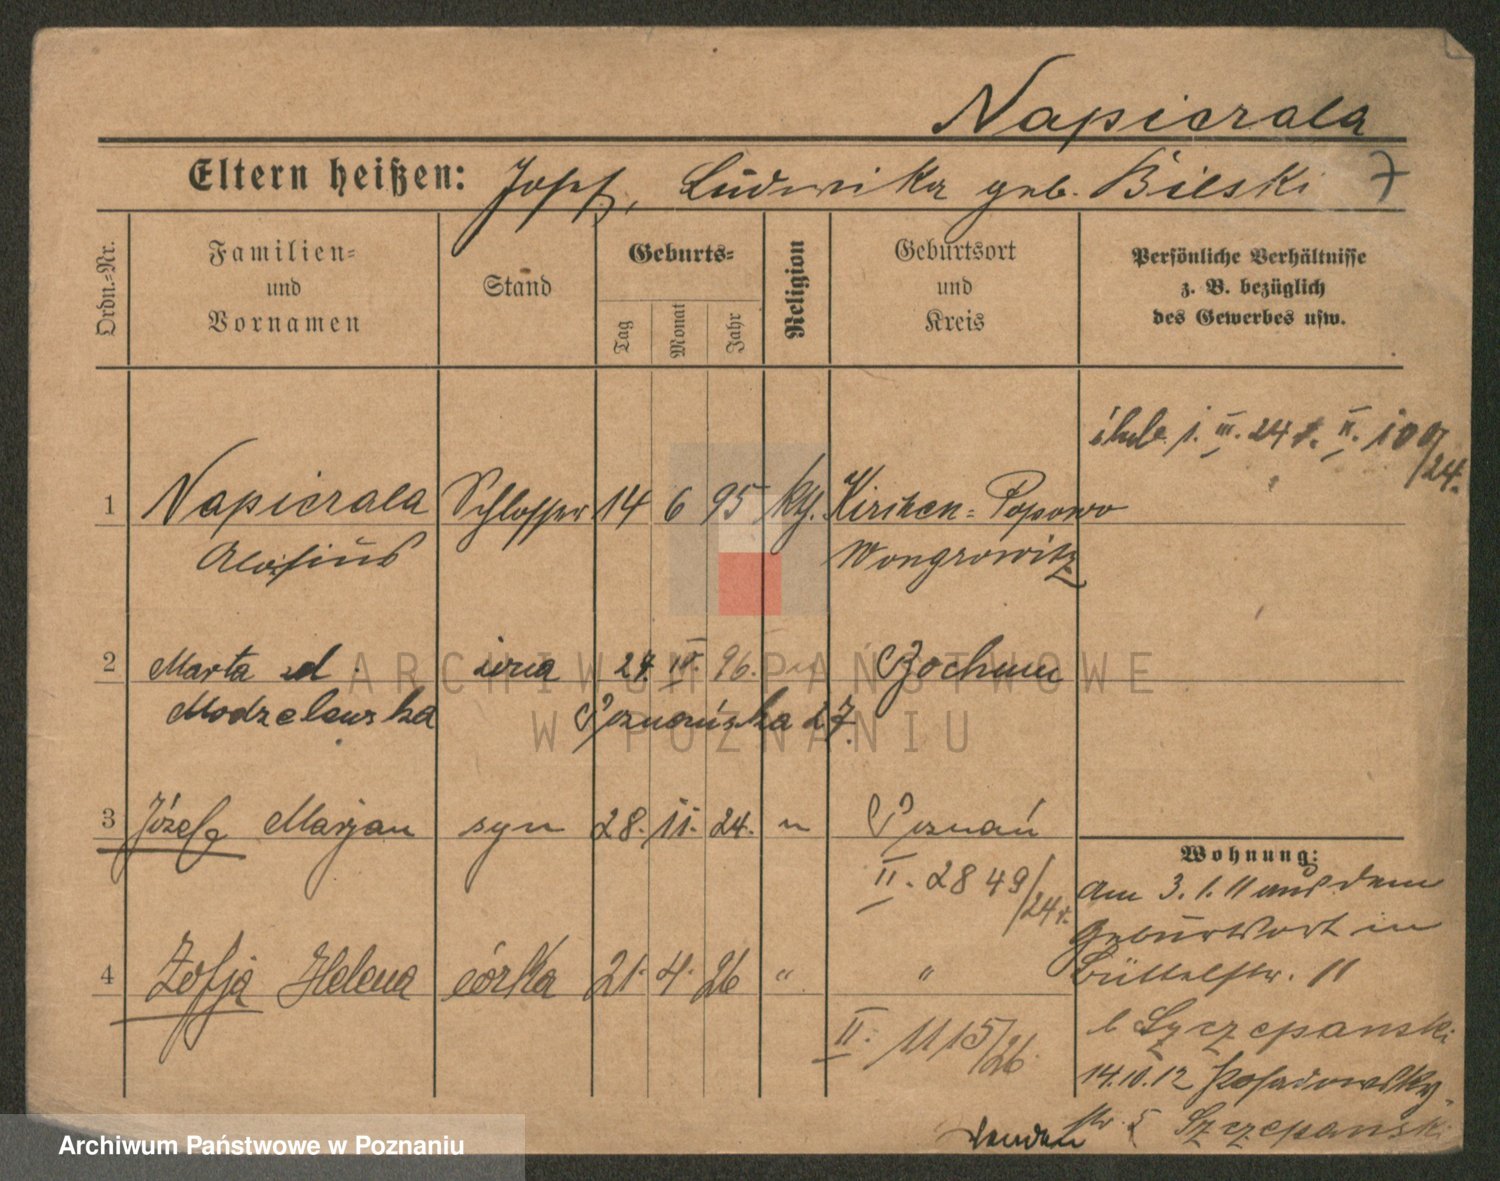 Napierala
Eltern heißen: Josef, Ludwika geb. Bielski 7
Ordn.-Nr.
Familien-
und
Vornamen
Stand
Geburts-
Tag Monat Jahr
Religion
Geburtsort
und
Kreis
Persönliche Verhältnisse
z. B. bezüglich
des Gewerbes usw.
ślub 1. III. 24 r. II. 107/24.
1 Napierala Schlosser 14 6 95 kth. Kirchen-Popowo
Aloisius Wongrowitz
2 Marta zd. żona 24. IV. 96. Bochum
Modzelewska Poznańska 27.
3 Józef Marjan syn 28. 11. 24. " Poznań
II. 2849/24 r.
Wohnung:
Am 3.1.11 aus dem
Geburtsort in
4 Zofja Helena córka 21. 4. 26 " "
Büttelstr. 11
II. 1115/26.
b Szczepanski
14.10.12 Posadowsky-
str. 5 Szczepanski
ARCHIWUM PAŃSTWOWE
W POZNANIU
Archiwum Państwowe w Poznaniu